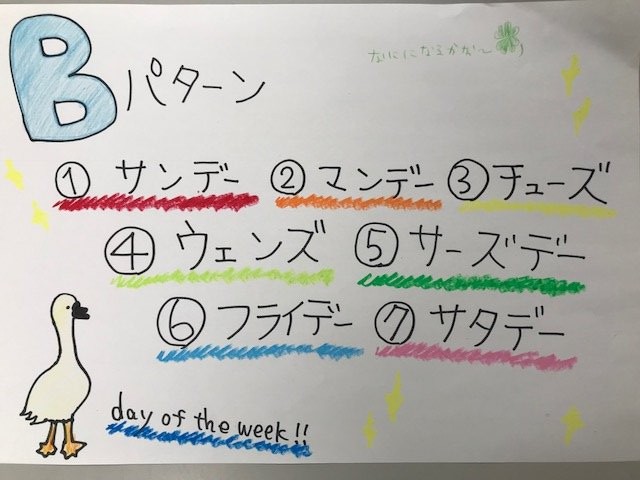 Bパターン
なにになるかな～
① サンデー ② マンデー ③ チューズ
④ ウェンズ ⑤ サーズデー
⑥ フライデー ⑦ サタデー
day of the week!!